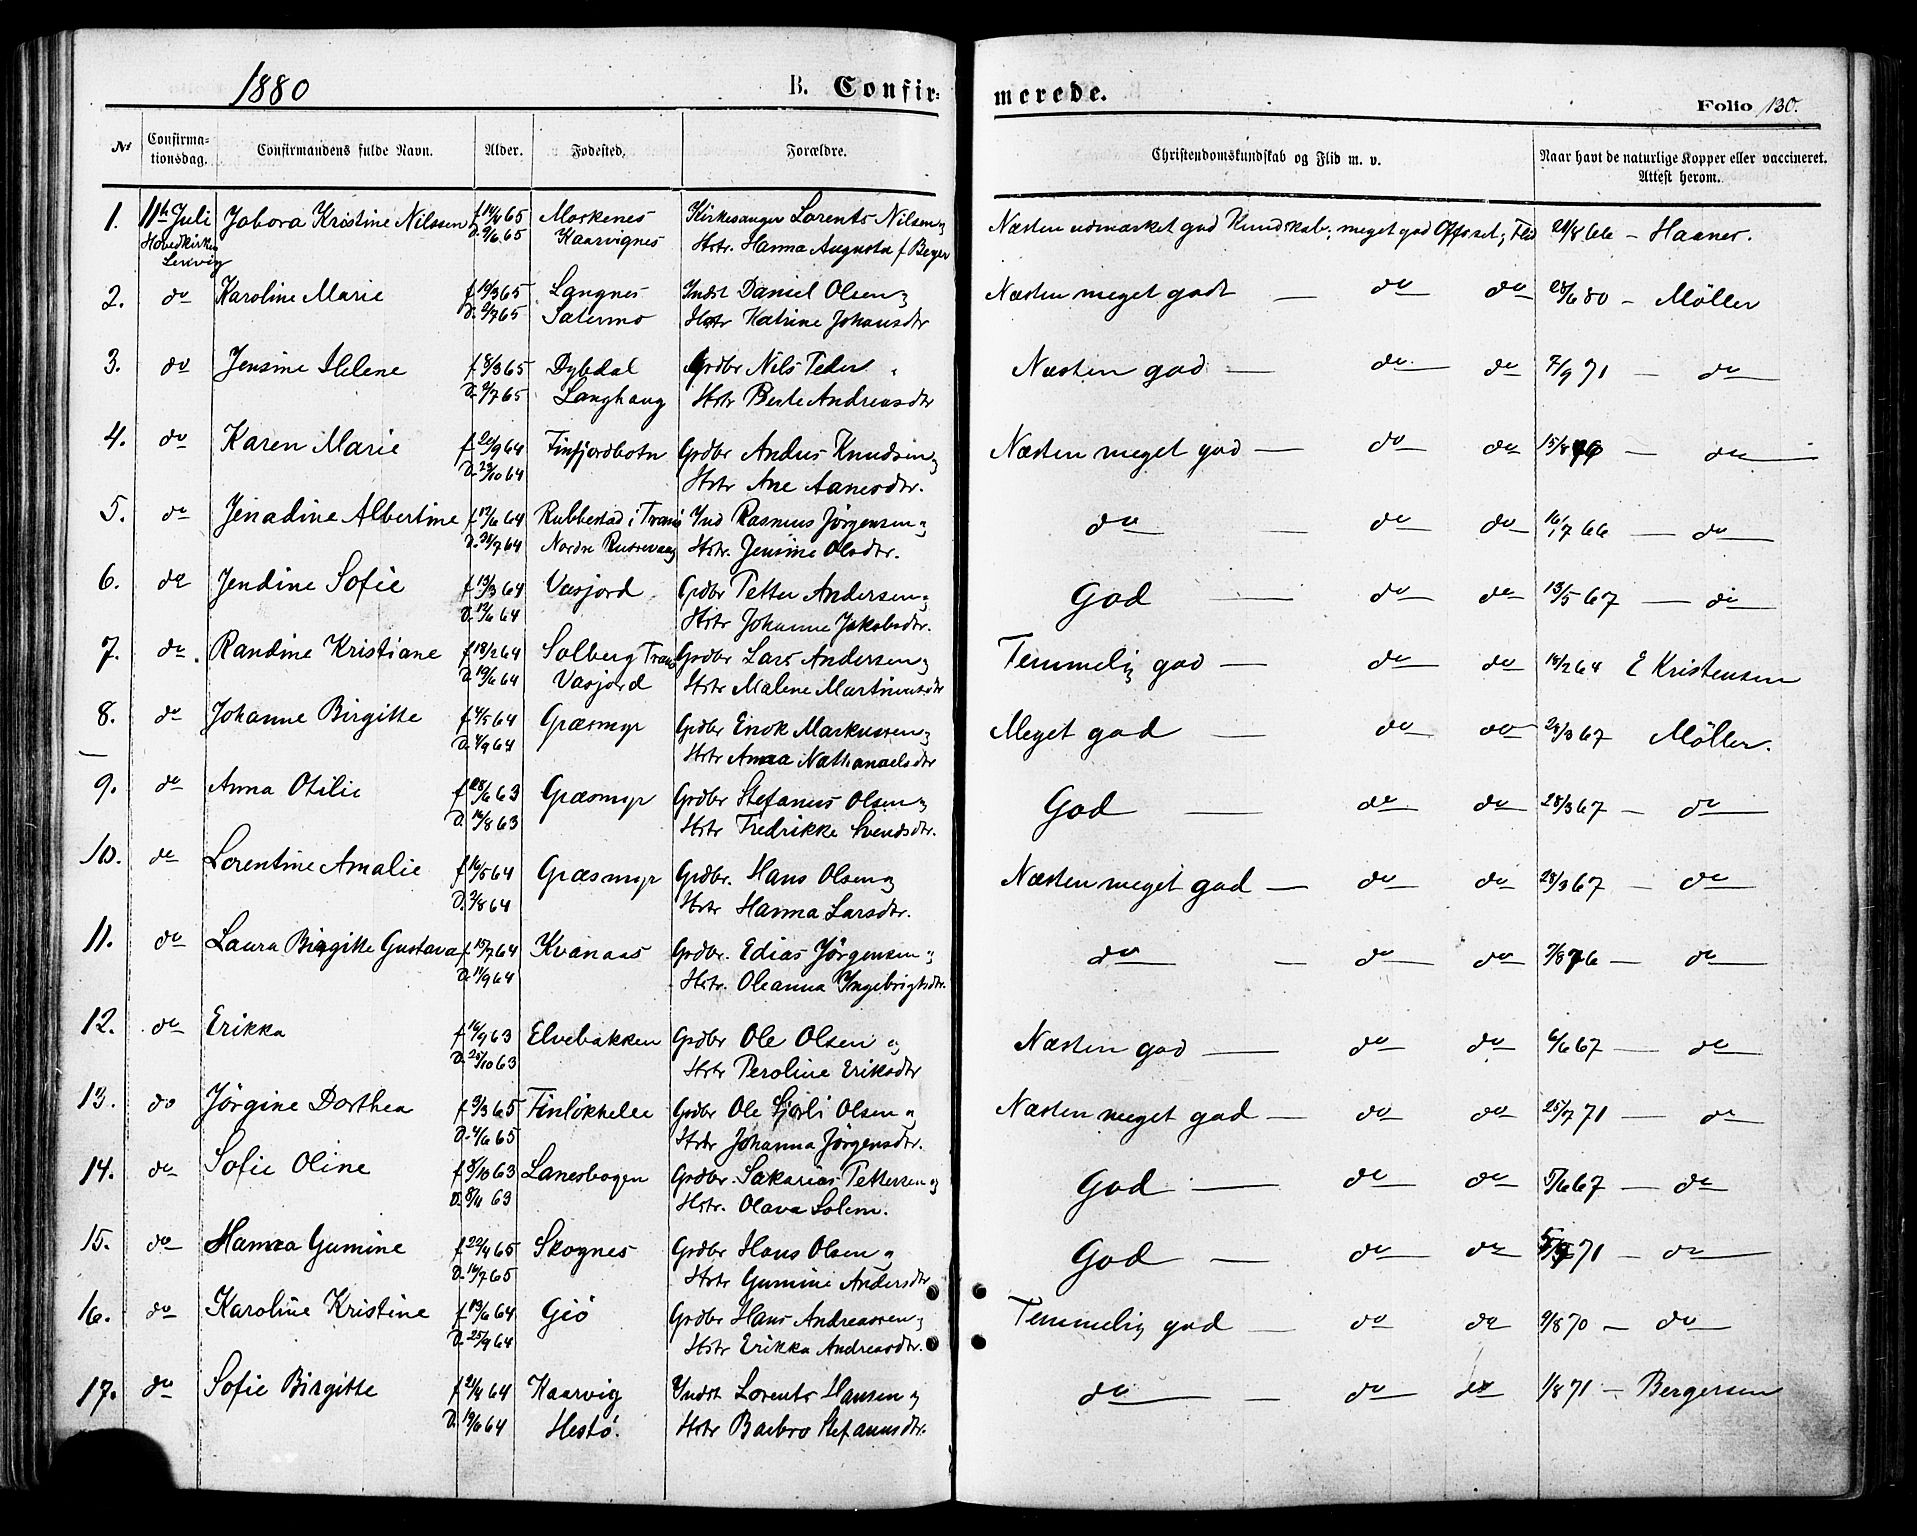 1880 B. Confirmerede. Folio 130.
No Confirmationsdag. Confirmandens fulde Navn. Alder. Fødested. Forældre. Christendomskundskab og Flid m. v. Naar havt de naturlige Kopper eller vaccineret. Attest herom.
1. 11te Juli Jobora Kristine Nilssen f 14/4 65 Moskenes Kirkesanger Lorents Nilsen og Næsten udmærket god Kundskab, meget god Opførsel, Flid 21/8 66 – Haaner.
Hovedkirken D. 9/6. 65 Kaarvignes Hstr. Hanna Augusta f Beyer
Lenvig
2. do Karoline Marie f 14/3 65 Langnes Indst Daniel Olsen og Næsten meget godt — do do 28/6 80 – Möller
D. 2/7 65 Hstr Katrine Johansdtr
3. do Jensine Helene f 8/3 65 Dybdal Grdbr Nils Peder Næsten god — do do 7/9 71 — do
D. 2/7 65 Langhaug Hstr Berte Andreasdtr
4. do Karen Marie f 20/9 64 Finfjordbotn Grdbr Anders Knudsen og Næsten meget god — do do 15/8 — do
D. 23/10 64 Hstr Ane Aanesdtr.
5. do Jenadine Albertine f 12/6 64 Rubbestad i Tranö Ind Rasmus Jörgensen og do — do do 16/7 66 — do
D. 24/7 64 Nordre Hstr. Jensine Olsdtr.
6. do Jendine Sofie f 13/3 64 Vasjord Grdbr Petter Andersen og God — do do 13/5 67 — do
D. 12/6 64 Hstr Johanne Jakobsdtr.
7. do. Randine Kristiane f 18/2 64 Solberg Tranö Grdbr Lars Andersen og Temmelig god — do do 18/2 64 E Kristensen
D. 19/6 64 Vasjord Hstr Malene Martinusdtr
8. do Johanne Birgitte f 4/5 64 Græsmyr Grdbr Enok Markussen og Meget god — do do 28/3 67 Möller.
D. 4/9 64 Hstr Anna Nathanaelsdtr
9. do Anna Otilie f 28/6 63 Græsmyr Grdbr Stefanus Olsen og God — do do 28/3 67 — do
D. 16/8 63 Hstr Fredrikke Svendsdtr.
10. do Lorentine Amalie f 16/5 64 Græsmyr Grdbr. Hans Olsen og Næsten meget god — do do 28/3 67 — do
D. 7/8 64 Hstr Hanna Larsdtr.
11. do Laura Birgitte Gustava f 15/7 64 Kvanaas Grdbr. Edias Jörgensen og do — do do 7/8 76 — do
D. 11/9 64 Hstr. Oleanna Ingebrigtsdtr.
12. do Erikka f 16/9 63 Elvebakken Grdbr Ole Olsen og Næsten god — do do 6/6 67 — do
D. 25/10 63 Hstr Peroline Eriksdtr
13. do Jörgine Dorthea f 9/3 65 Grdbr Ole Olsen og Næsten meget god — do do 25/7 71 — do
D. 4/6 65 Hstr Johanna Jörgensdtr.
14. do Sofie Oline f 8/10 63 Lanesbogen Grdbr. Sakarias Pettersen og God — do do 5/6 67 — do
D. 8/11 63 Hstr. Olava Solem.
15. do Hanna Gumine f 22/4 65 Skognes Grdbr Hans Olsen og God — do do 71 — do
D. 16/7 65 Hstr Gumine Andersdtr
16. do Karoline Kristine f 13/6 64 Giö Grdbr Hans Andreassen og Temmelig god — do do 9/8 70 — do
D. 25/9 64 Hstr Erikka Andreasdtr.
17. do Sofie Birgitte f 21/4 64 Kaarvig Indst Lorents Hansen og do — do do 1/8 71 — Bergersen
D. 19/6 64 Hestö. Hstr Barbro Stefanusdtr.